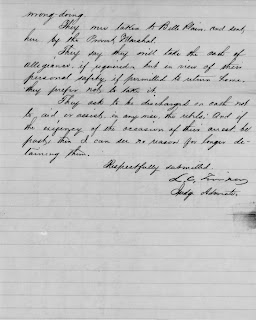 wrong doing.
They were taken to Belle Plain and sent
here by the Provost Marshal.
They say they will take the oath of
allegiance, if required, but in view of their
personal safety, if permitted to return home
they prefer not to take it.
They ask to be discharged on oath not
to aid, or assist, in any way, the rebels; and if
the exigency of the occasion of their arrest be
past, then I can see no reason for longer de-
taining them.
Respectfully submitted.
L. C.
Judge Advocate